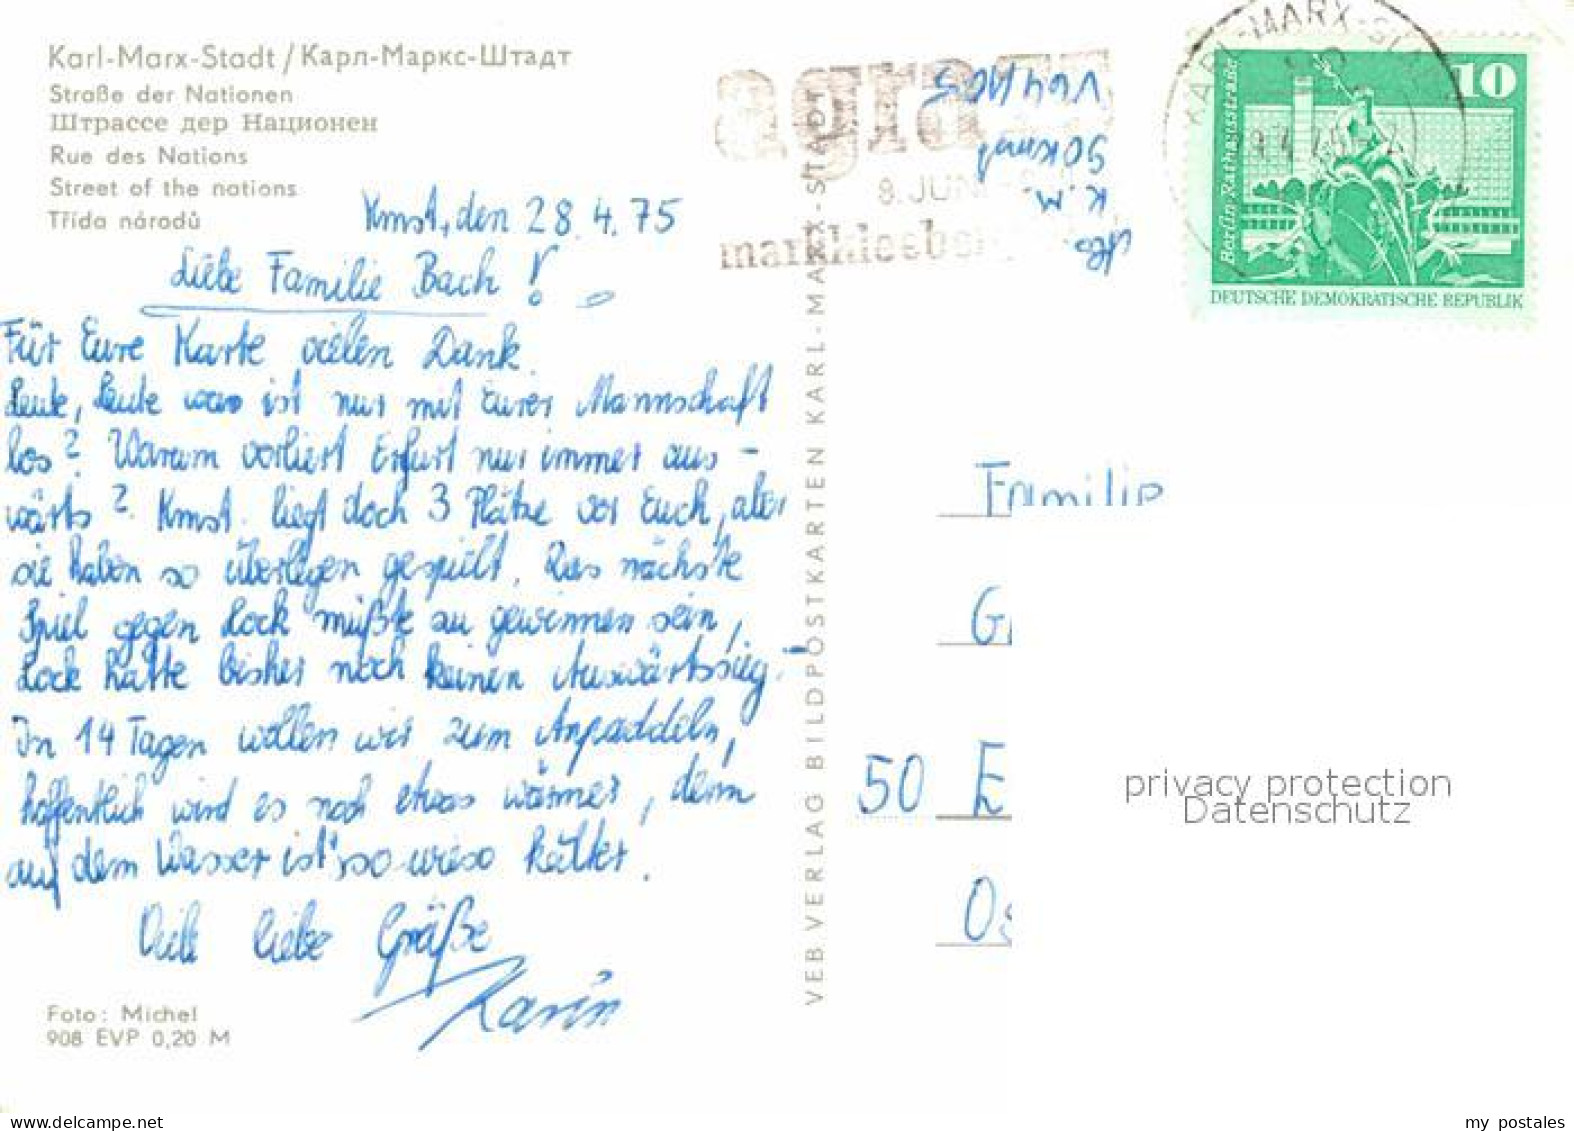 Karl-Marx-Stadt / Карл-Маркс-Штадт
Straße der Nationen
Штрассе дер Национен
Rue des Nations
Street of the nations
Třída národů
Kmst, den 28.4.75
Liebe Familie Bach!
Für Eure Karte vielen Dank.
Leute, Leute was ist nur mit Eurer Mannschaft
los? Warum verliert Erfurt nur immer aus-
wärts? Kmst. liegt doch 3 Plätze vor Euch, aber
sie haben so überlegen gespielt. Das nächste
Spiel gegen Lock müßte zu gewinnen sein,
Lock hatte bisher noch keinen Auswärtssieg.-
In 14 Tagen wollen wir zum Anpaddeln,
hoffentlich wird es noch etwas wärmer, denn
auf dem Wasser ist's so-wieso kälter.
Viele liebe Grüße
Karin
Foto: Michel
908 EVP 0,20 M
VEB VERLAG BILDPOSTKARTEN KARL-MARX-STADT
agra
8. JUNI
markkleeberg
K. M.
KARL-MARX-STADT
10
Berlin-Rathausstraße
DEUTSCHE DEMOKRATISCHE REPUBLIK
Familie
G
50 E
Os
privacy protection
Datenschutz
delcampe.net
my postales